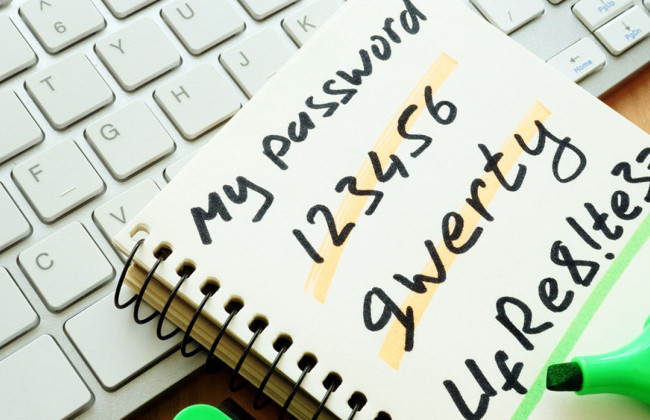 My password
123456
qwerty
UfRe8!te3
^
6
T
Y
U
F
G
H
J
K
C
V
PgUp
PgDn
Home